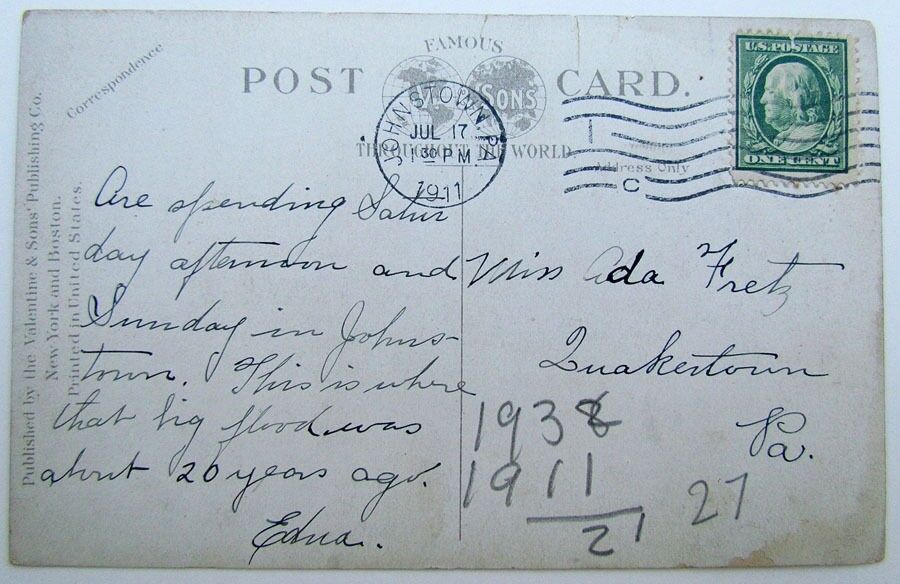 Published by the Valentine & Sons' Publishing Co.
New York and Boston.
Printed in United States.
Correspondence
FAMOUS
POST CARD.
SONS
THROUGHOUT THE WORLD
Address Only
JOHNSTOWN, PA
JUL 17
30 PM
1911
C
U.S. POSTAGE
ONE CENT
Are spending Satur
day afternoon and
Sunday in Johns-
town. This is where
that big flood was
about 20 years ago.
Edna.
Miss Ada Fretz
Quakertown
Pa.
1938
1911
21
27